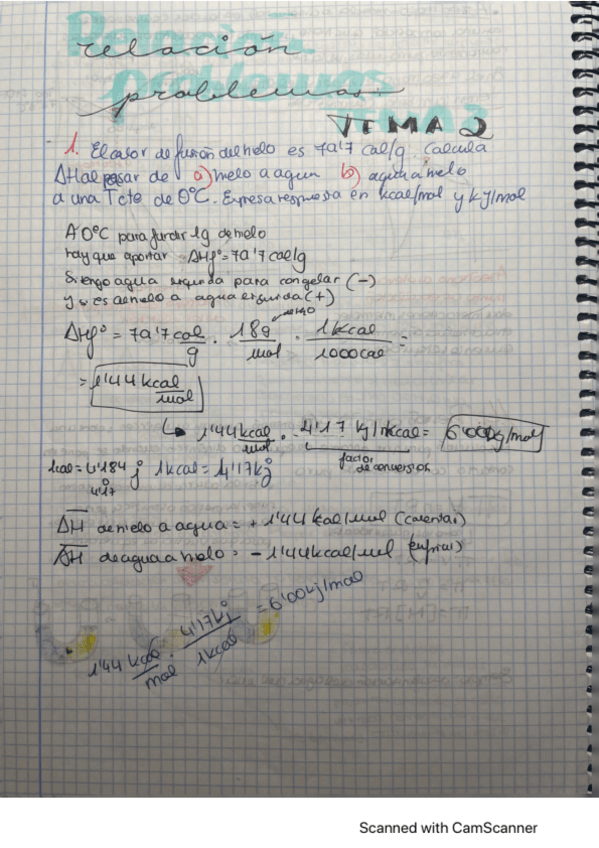 relación
problemas
TEMA 2
1. El calor de fusión del hielo es 79'7 cal/g. Calcula
ΔH al pasar de a) hielo a agua b) agua a hielo
a una T cte de 0ºC. Expresa respuesta en kcal/mol y kJ/mol
A 0ºC para fundir 1g de hielo
hay que aportar ΔHfº = 79'7 cal/g
Si tengo agua líquida para congelar (-)
y si es de hielo a agua líquida (+)
de H2O
ΔHfº = 79'7 cal/g · 18g/mol · 1kcal/1000cal =
= 1'44 kcal/mol
↳ 1'44 kcal/mol · 4'17 kJ/kcal = 6'00 kJ/mol
factor
de conversión
1cal = 4'184 J 1kcal = 4'17kJ
4'17
ΔH de hielo a agua = + 1'44 kcal/mol (calentar)
ΔH de agua a hielo = - 1'44 kcal/mol (enfriar)
1'44 kcal/mol · 4'17kJ/1kcal = 6'00 kJ/mol
Scanned with CamScanner